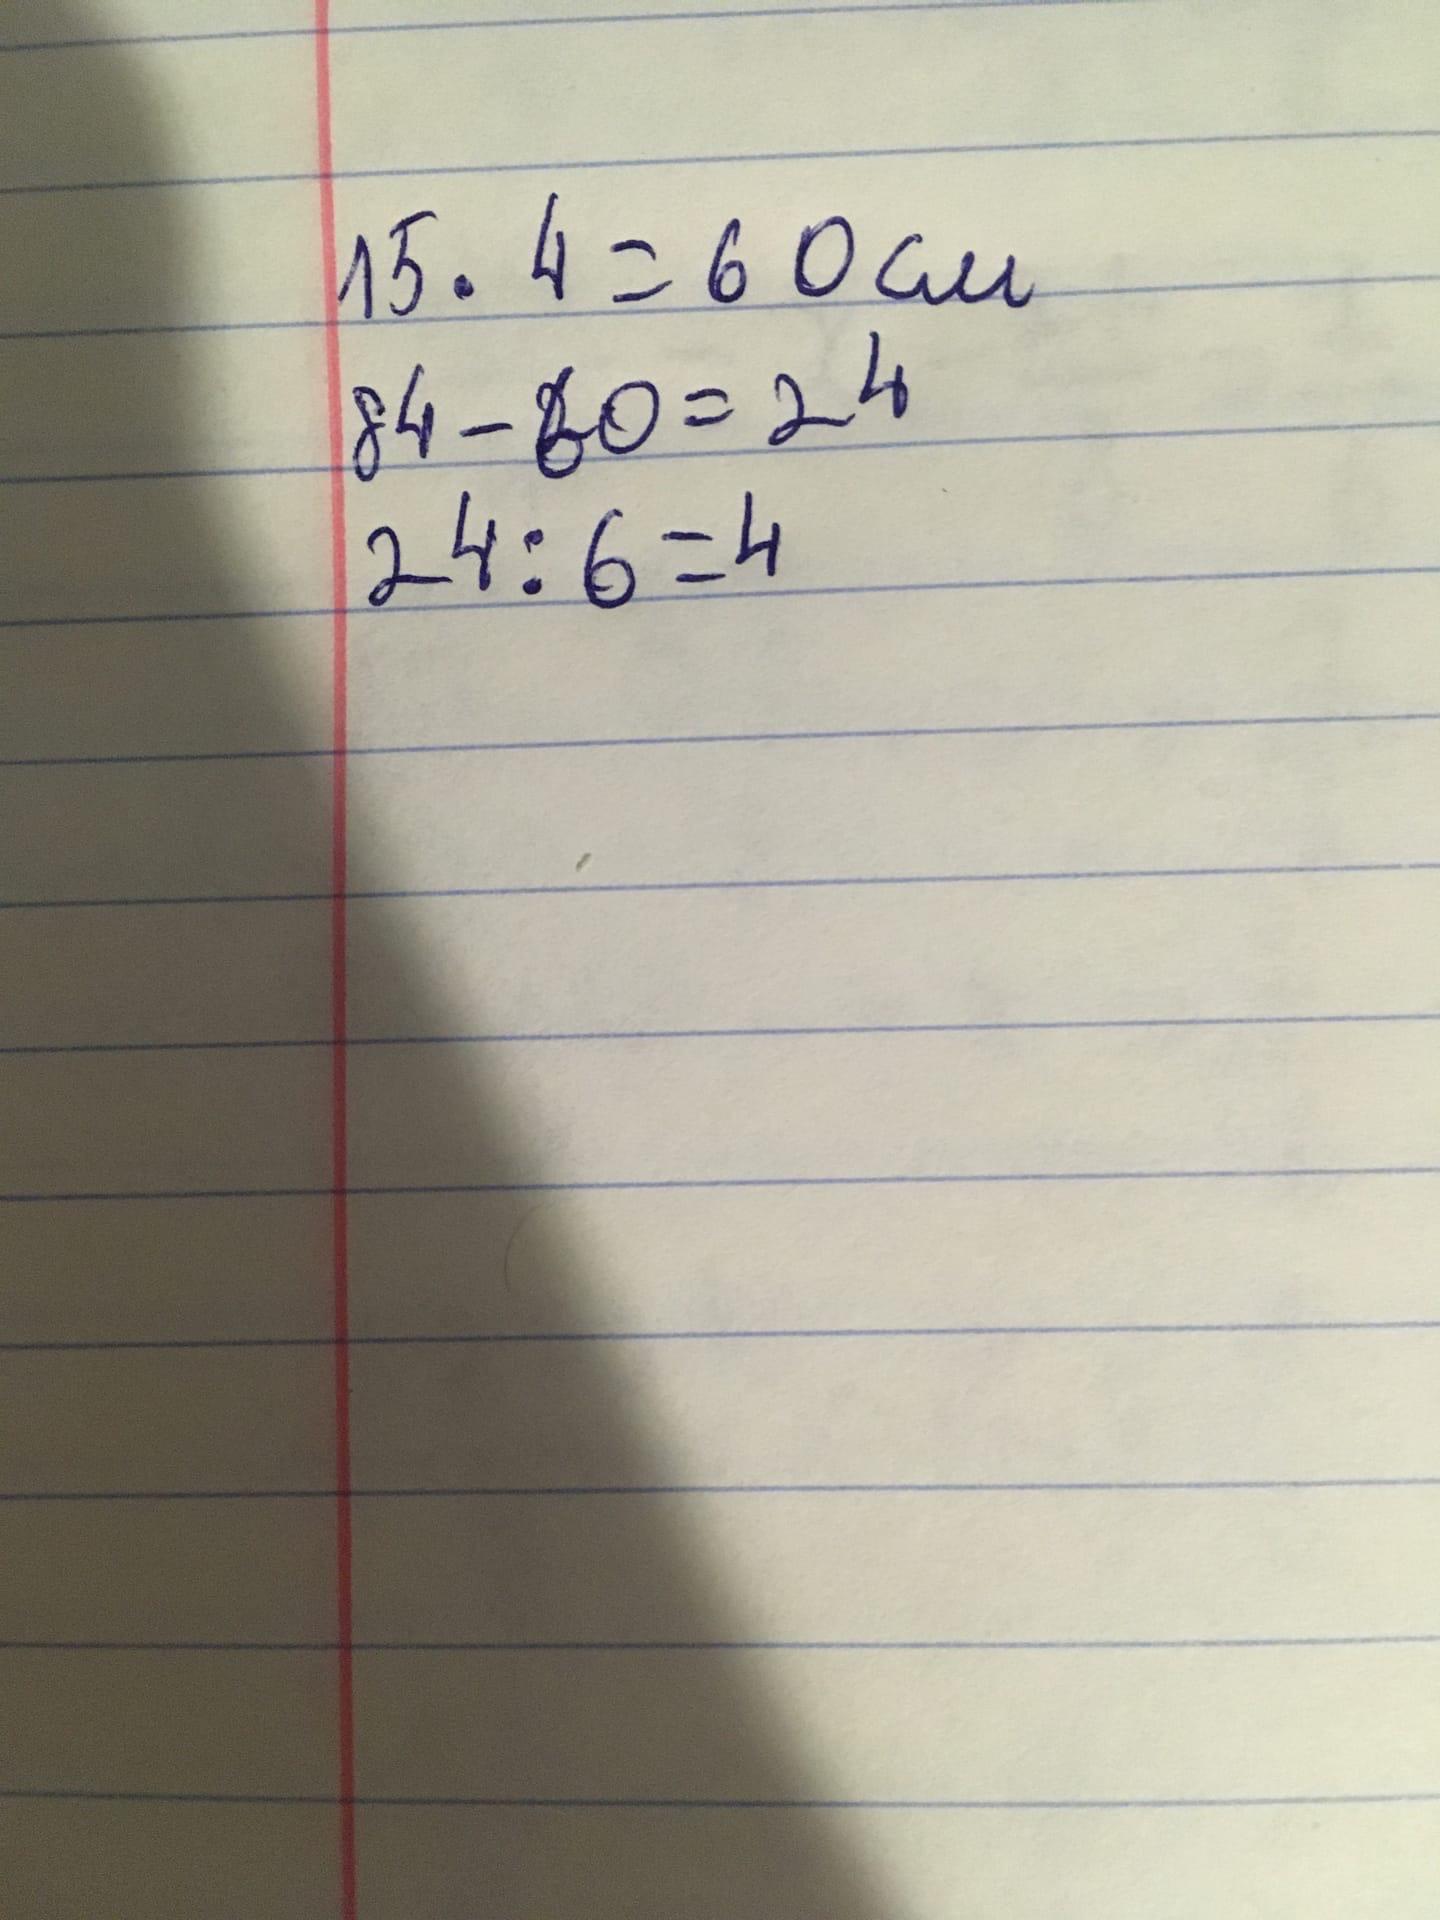 15. 4=60см
84-60=24
24:6=4